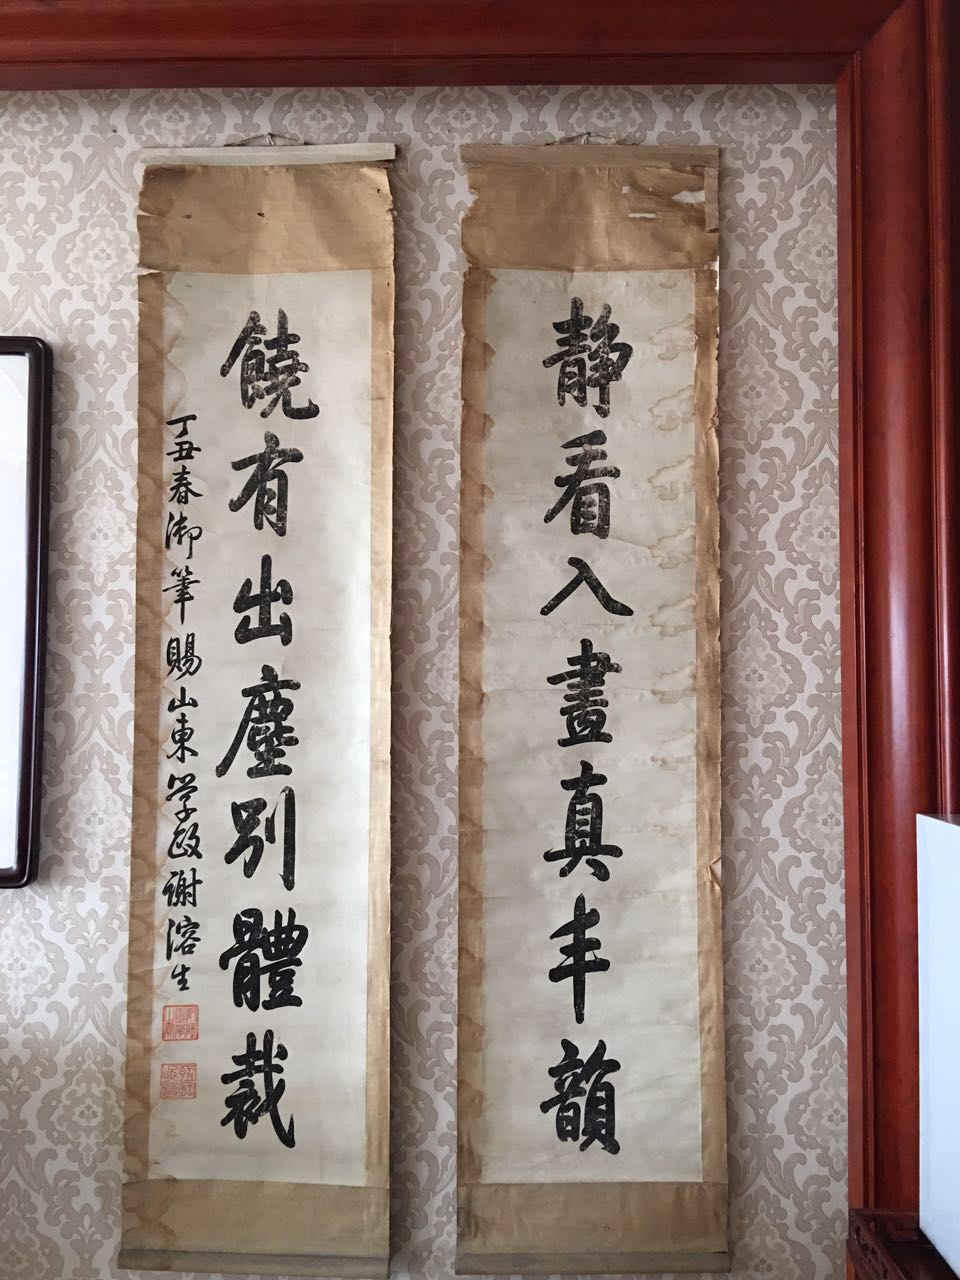 静看入畫真丰韻
饒有出塵別體裁
丁丑春御筆賜山東学政謝溶生